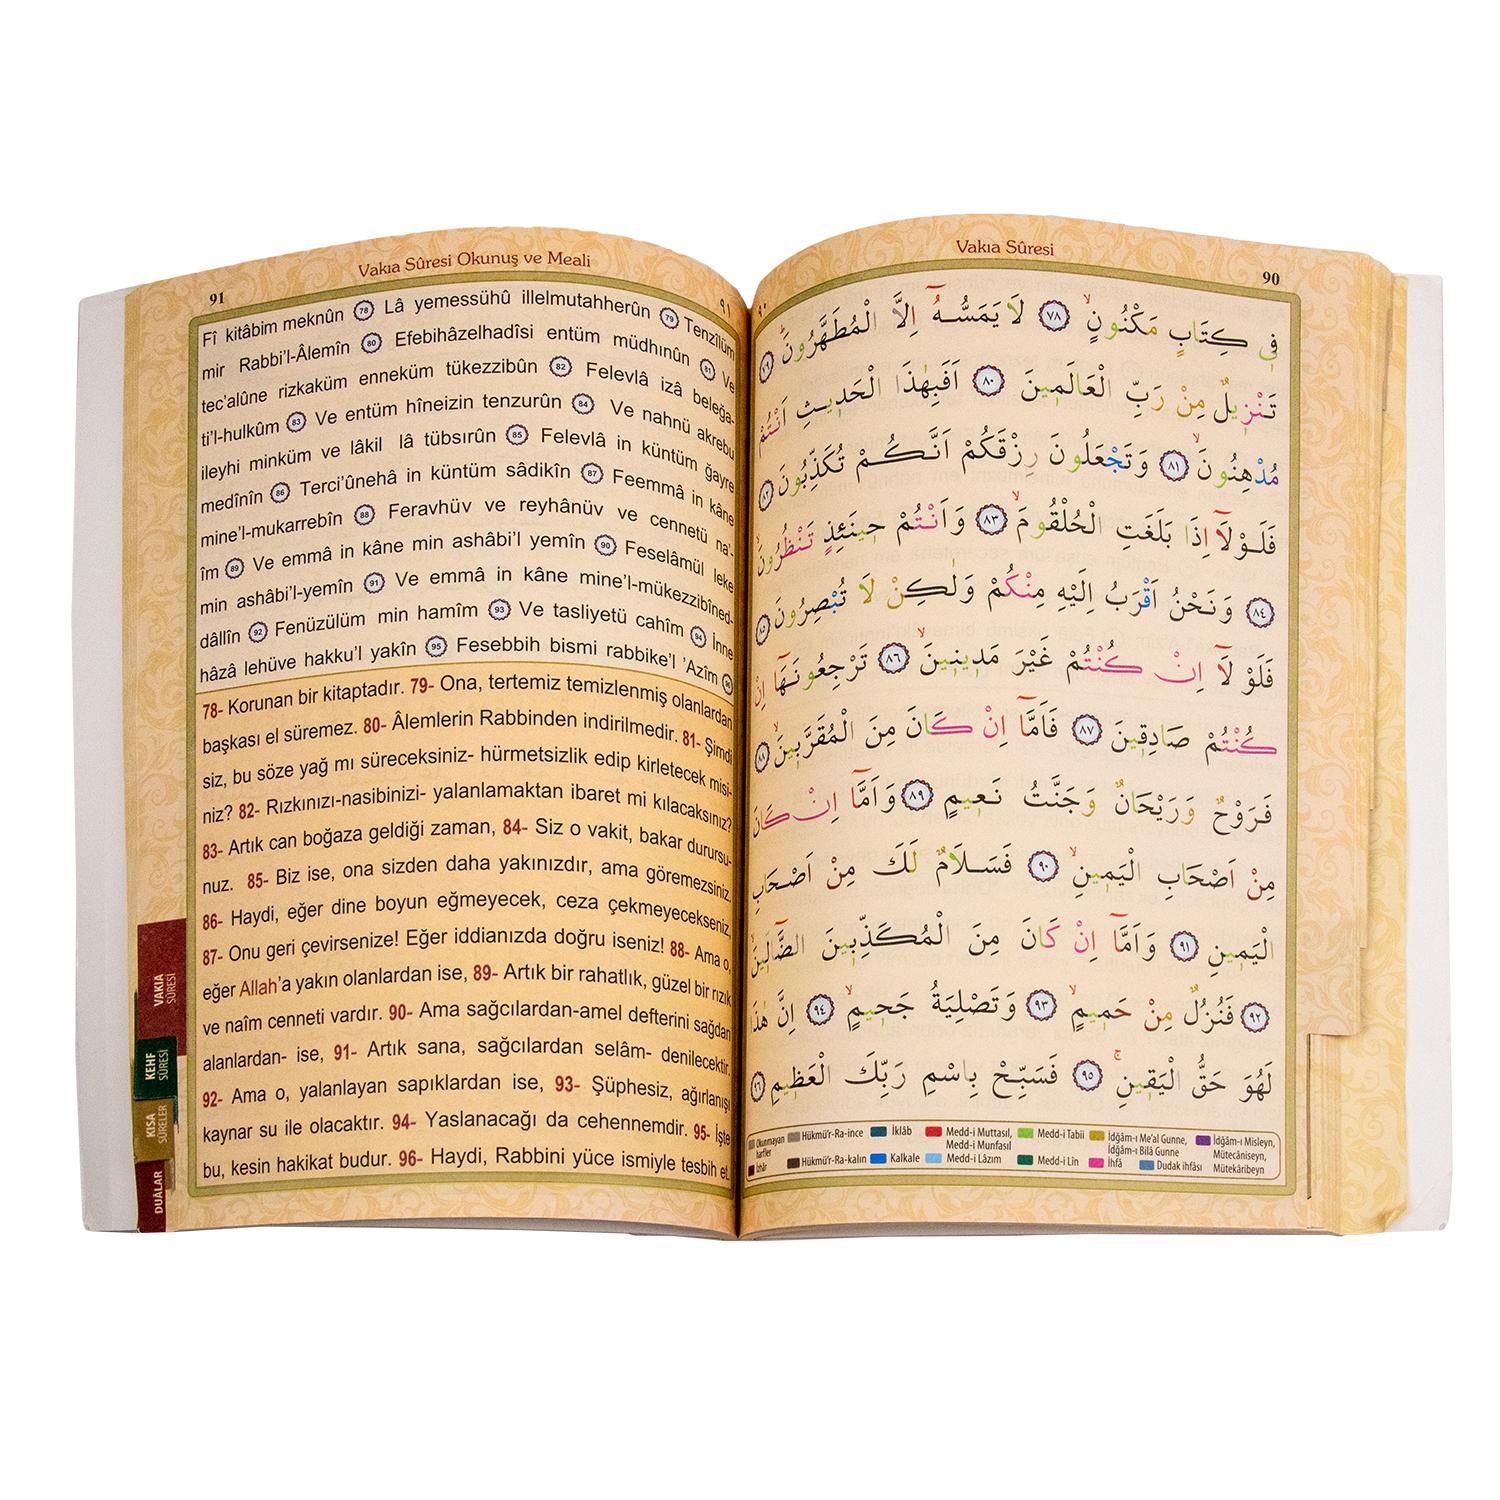 Vakıa Sûresi Okunuş ve Meali
91
٩١
Fî kitâbim meknûn 78 Lâ yemessühû illelmutahherûn 79 Tenzîlüm
mir Rabbi'l-Âlemîn 80 Efebihâzelhadîsi entüm müdhınûn 81 Ve
tec'alûne rizkaküm enneküm tükezzibûn 82 Felevlâ izâ beleğa-
ti'l-hulkûm 83 Ve entüm hîneizin tenzurûn 84 Ve nahnü akrebu
ileyhi minküm ve lâkil lâ tübsırûn 85 Felevlâ in küntüm ğayre
medînîn 86 Terci'ûnehâ in küntüm sâdikîn 87 Feemmâ in kâne
mine'l-mukarrebîn 88 Feravhüv ve reyhânüv ve cennetü na'-
îm 89 Ve emmâ in kâne min ashâbi'l yemîn 90 Feselâmül leke
min ashâbi'l-yemîn 91 Ve emmâ in kâne mine'l-mükezzibîned-
dâllîn 92 Fenüzülüm min hamîm 93 Ve tasliyetü cahîm 94 İnne
hâzâ lehüve hakku'l yakîn 95 Fesebbih bismi rabbike'l 'Azîm 96
78- Korunan bir kitaptadır. 79- Ona, tertemiz temizlenmiş olanlardan
başkası el süremez. 80- Âlemlerin Rabbinden indirilmedir. 81- Şimdi
siz, bu söze yağ mı süreceksiniz- hürmetsizlik edip kirletecek misi-
niz? 82- Rızkınızı-nasibinizi- yalanlamaktan ibaret mi kılacaksınız?
83- Artık can boğaza geldiği zaman, 84- Siz o vakit, bakar durursu-
nuz. 85- Biz ise, ona sizden daha yakınızdır, ama göremezsiniz,
86- Haydi, eğer dine boyun eğmeyecek, ceza çekmeyecekseniz,
87- Onu geri çevirsenize! Eğer iddianızda doğru iseniz! 88- Ama o,
eğer Allah'a yakın olanlardan ise, 89- Artık bir rahatlık, güzel bir rızık
ve naîm cenneti vardır. 90- Ama sağcılardan-amel defterini sağdan
alanlardan- ise, 91- Artık sana, sağcılardan selâm- denilecektir.
92- Ama o, yalanlayan sapıklardan ise, 93- Şüphesiz, ağırlanışı
kaynar su ile olacaktır. 94- Yaslanacağı da cehennemdir. 95- İşte
bu, kesin hakikat budur. 96- Haydi, Rabbini yüce ismiyle tesbih et.
VAKIA
SÛRESİ
KEHF
SÛRESİ
KISA
SÛRELER
DUÂLAR
Vakıa Sûresi
90
٩٠
فِى كِتَابٍ مَكْنُونٍ ٧٨ لَا يَمَسُّهُٓ اِلَّا الْمُطَهَّرُونَ ٧٩
تَنْزِيلٌ مِنْ رَبِّ الْعَالَمِينَ ٨٠ اَفَبِهٰذَا الْحَدِيثِ اَنْتُمْ
مُدْهِنُونَ ٨١ وَتَجْعَلُونَ رِزْقَكُمْ اَنَّكُمْ تُكَذِّبُونَ ٨٢
فَلَوْلَٓا اِذَا بَلَغَتِ الْحُلْقُومَ ٨٣ وَاَنْتُمْ حِينَئِذٍ تَنْظُرُونَ
٨٤ وَنَحْنُ اَقْرَبُ اِلَيْهِ مِنْكُمْ وَلٰكِنْ لَا تُبْصِرُونَ ٨٥
فَلَوْ لَٓا اِنْ كُنْتُمْ غَيْرَ مَدِينِينَ ٨٦ تَرْجِعُونَهَٓا اِنْ
كُنْتُمْ صَادِقِينَ ٨٧ فَاَمَّٓا اِنْ كَانَ مِنَ الْمُقَرَّبِينَ ٨٨
فَرَوْحٌ وَرَيْحَانٌ وَجَنَّتُ نَعِيمٍ ٨٩ وَاَمَّٓا اِنْ كَانَ
مِنْ اَصْحَابِ الْيَمِينِ ٩٠ فَسَلَامٌ لَكَ مِنْ اَصْحَابِ
الْيَمِينِ ٩١ وَاَمَّٓا اِنْ كَانَ مِنَ الْمُكَذِّبِينَ الضَّٓالِّينَ
٩٢ فَنُزُلٌ مِنْ حَمِيمٍ ٩٣ وَتَصْلِيَةُ جَحِيمٍ ٩٤ اِنَّ هٰذَا
لَهُوَ حَقُّ الْيَقِينِ ٩٥ فَسَبِّحْ بِاسْمِ رَبِّكَ الْعَظِيمِ ٩٦
Okunmayan harfler Hükmü'r-Ra-ince İklâb Medd-i Muttasıl, Medd-i Munfasıl Medd-i Tabii İdğâm-ı Me'al Gunne, İdğâm-ı Bilâ Gunne İdğâm-ı Misleyn, Mütecâniseyn, Mütekâribeyn
İzhâr Hükmü'r-Ra-kalın Kalkale Medd-i Lâzım Medd-i Lîn İhfâ Dudak ihfâsı